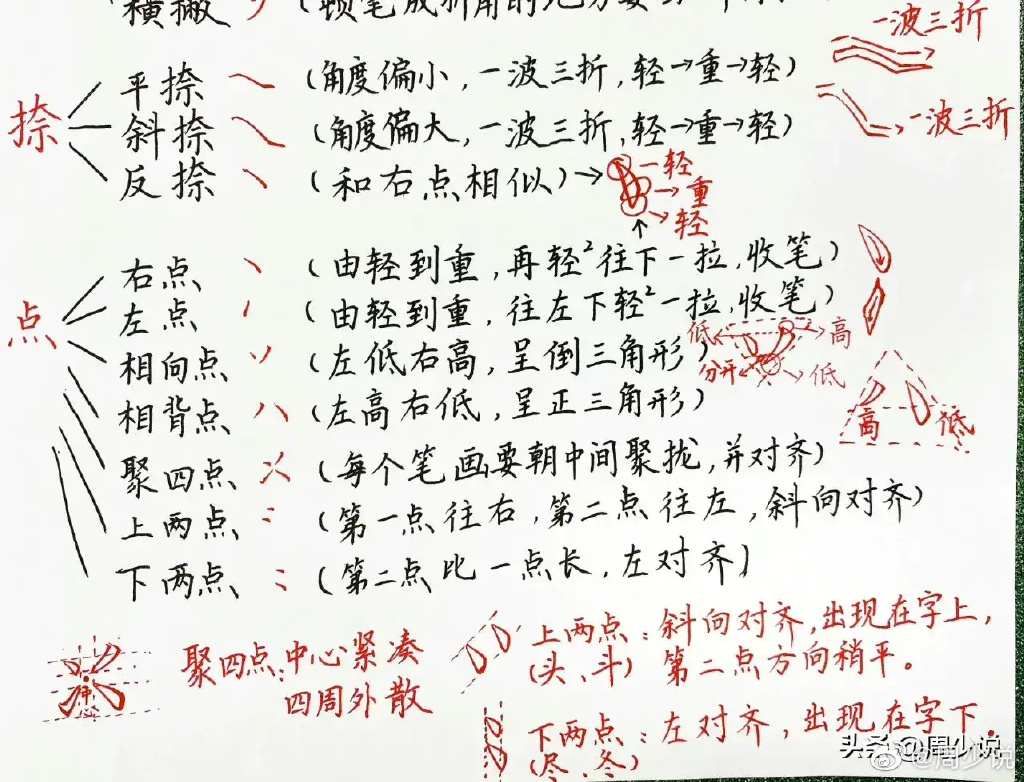 横撇 (顿笔成折角的地方要
一波三折
捺
平捺 (角度偏小，一波三折，轻→重→轻)
斜捺 (角度偏大，一波三折，轻→重→轻)
一波三折
反捺 (和右点相似)→
轻
重
轻
点
右点 (由轻到重，再轻²往下一拉，收笔)
左点 (由轻到重，往左下轻²一拉，收笔)
低 高
相向点 (左低右高，呈倒三角形)
分开 低
相背点 (左高右低，呈正三角形)
高 低
聚四点 (每个笔画要朝中间聚拢，并对齐)
上两点 (第一点往右，第二点往左，斜向对齐)
下两点 (第二点比一点长，左对齐)
聚四点：中心紧凑
四周外散
中心
上两点：斜向对齐，出现在字上，
(头、斗) 第二点方向稍平。
下两点：左对齐，出现在字下.
(尽、冬)
头条 @周少说
@周少说